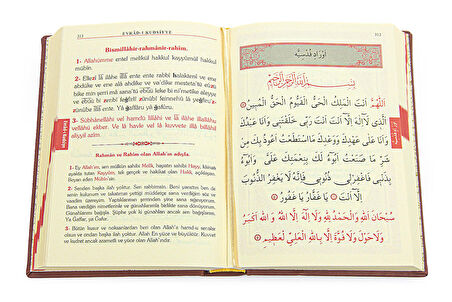 313
EVRÂD-I KUDSİYYE
Bismillâhir-rahmânir-rahîm.
1- Allahümme entel melikül hakkul kayyûmül hakkul
mübîn.
2- Ellezî lâ ilâhe illâ ente ente rabbî halaktenî ve ene
abdüke ve ene alâ ahdike ve va'dike mesteta'tü eûzü
bike min şerri mâ sana'tü ebûü leke bi ni'metike aleyye
ve ebûü bi zenbî feğfirlî zünûbî feinnehû lâ yeğfiruz'zü
nûbe illâ ente Yâ ğaffâru Yâ ğafûru.
3- Sübhânellâhi vel hamdü lillâhi ve lâ ilâhe illallâhu
vellâhü ekber. Ve lâ havle ve lâ kuvvete illâ billâhil
aliyyil azîm.
Rahmân ve Rahîm olan Allah'ın adıyla.
1- Ey Allah'ım, sen mülkün sahibi Melik, hayatın sahibi Hayy, herkesi
ayakta tutan Kayyûm, tek gerçek ve hakikat olan Hakk, açıklayıp
Beyan eden Mübîn'sin.
2- Senden başka ilah yoktur. Sen rabbimsin. Beni yarattın ben de
senin kulunum ve takatimce yettiği müddetçe sana verdiğim söz ve
vaadim üzereyim. Yaptıklarımın şerrinden yine sana sığınıyorum.
Bana verdiğin nimetlerinle ve günahlarımla birlikte sana döndüm.
Günahlarımı bağışla. Şüphe yok ki günahları ancak sen bağışlarsın.
Ya Gaffar, ya Gafur.
3- Bütün kusur ve noksanlardan beri olan Allah'a hamd-ü senalar
olsun ve ondan başka ilah yoktur. Allah En yüce ve büyüktür. Kuvvet
ve kudret ancak azametli ve yüce olan Allah'ındır.
Evrâd-ı Kudsiyye
313
اَوْرَادِ قُدْسِيَّه
بِسْمِ اللهِ الرَّحْمٰنِ الرَّحِيمِ
اَللّٰهُمَّ اَنْتَ الْمَلِكُ الْحَىُّ الْقَيُّومُ الْحَقُّ الْمُبِينُ
اَلَّذِى لَا اِلٰهَ اِلَّا اَنْتَ اَنْتَ رَبِّى خَلَقْتَنِى وَاَنَا عَبْدُكَ
وَاَنَا عَلٰى عَهْدِكَ وَوَعْدِكَ مَااسْتَطَعْتُ اَعُوذُ بِكَ مِنْ
شَرِّ مَا صَنَعْتُ اَبُوءُ لَكَ بِنِعْمَتِكَ عَلَىَّ وَاَبُوءُ
بِذَنْبِى فَاغْفِرْلِى ذُنُوبِى فَاِنَّهُ لَا يَغْفِرُ الذُّنُوبَ
اِلَّا اَنْتَ يَا غَفَّارُ يَا غَفُورُ
سُبْحَانَ اللهِ وَالْحَمْدُ لِلّٰهِ وَلَا اِلٰهَ اِلَّا اللهُ وَاللهُ اَكْبَرُ
وَلَاحَوْلَ وَلَا قُوَّةَ اِلَّا بِاللهِ الْعَلِىِّ الْعَظِيمِ